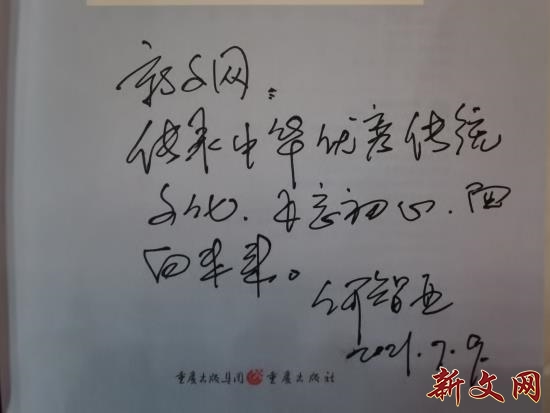 新文网：
传承中华优秀传统
文化．不忘初心．面
向未来。
何智亚
2021.7.9.
重庆出版集团 重庆出版社
新文网